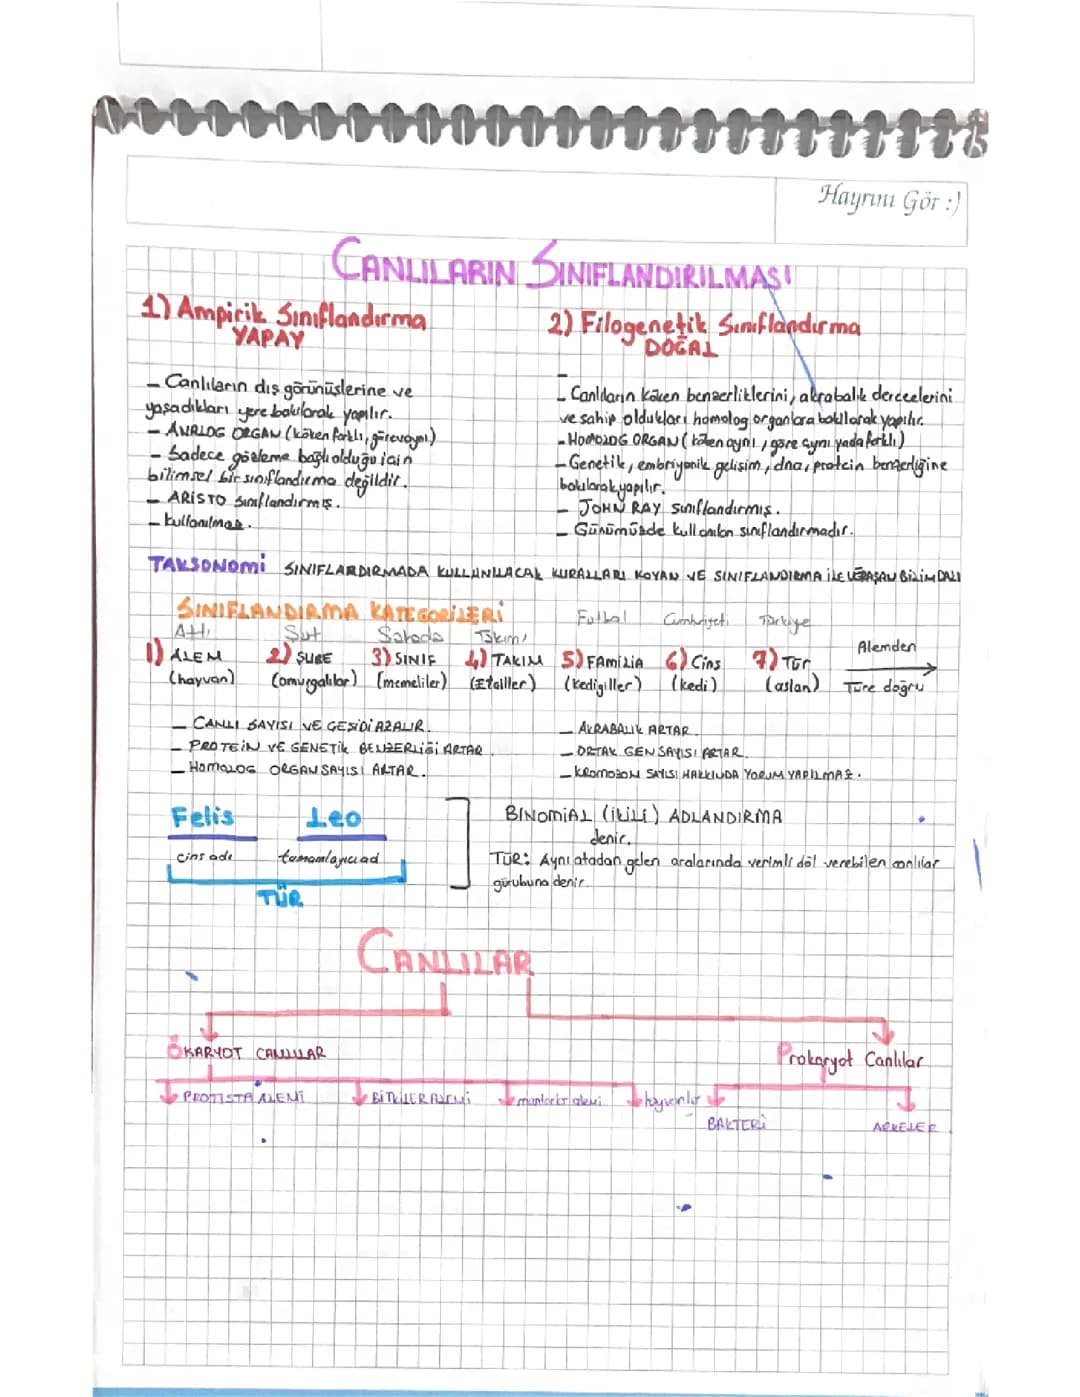 Hayrını Gör :)
CANLILARIN SINIFLANDIRILMASI
1) Ampirik Sınıflandırma
YAPAY
- Canlıların dış görünüşlerine ve
yaşadıkları yere bakılarak yapılır.
- ANALOG ORGAN (köken farklı, görev aynı)
- Sadece gözleme bağlı olduğu için
bilimsel bir sınıflandırma değildir.
- ARİSTO sınıflandırmış.
- Kullanılmaz.
2) Filogenetik Sınıflandırma
DOĞAL
-
- Canlıların köken benzerliklerini, akrabalık derecelerini
ve sahip oldukları homolog organlara bakılarak yapılır.
- HOMOLOG ORGAN (köken aynı, göre aynı yada farklı)
- Genetik, embriyonik gelişim, dna, protein benzerliğine
bakılarak yapılır.
- JOHN RAY sınıflandırmış.
- Günümüzde kullanılan sınıflandırmadır.
TAKSONOMİ SINIFLARDIRMADA KULLANILACAK KURALLARI KOYAN VE SINIFLANDIRMA İLE UĞRAŞAN BİLİM DALI
SINIFLANDIRMA KATEGORİLERİ
Attı Şut Sahada Takımı Futbol Cumhuriyeti Türkiye
1) ALEM 2) ŞUBE 3) SINIF 4) TAKIM 5) FAMİLİA 6) Cins 7) Tür Alemden
(hayvan) (omurgalılar) (memeliler) (Etçiller) (kedigiller) (kedi) (aslan) Türe doğru
- CANLI SAYISI VE ÇEŞİDİ AZALIR.
- PROTEİN VE GENETİK BENZERLİĞİ ARTAR.
- HOMOLOG ORGAN SAYISI ARTAR.
- AKRABALIK ARTAR.
- ORTAK GEN SAYISI ARTAR.
- KROMOZOM SAYISI HAKKINDA YORUM YAPILMAZ.
Felis Leo
cins adı tamamlayıcı ad
TÜR
BİNOMİAL (İKİLİ) ADLANDIRMA
denir.
TÜR: Aynı atadan gelen aralarında verimli döl verebilen canlılar
gurubuna denir.
CANLILAR
ÖKARYOT CANLILAR
Prokaryot Canlılar
PROTİSTA ALEMİ BİTKİLER ALEMİ mantarlar alemi hayvanlar
BAKTERİ ARKELER